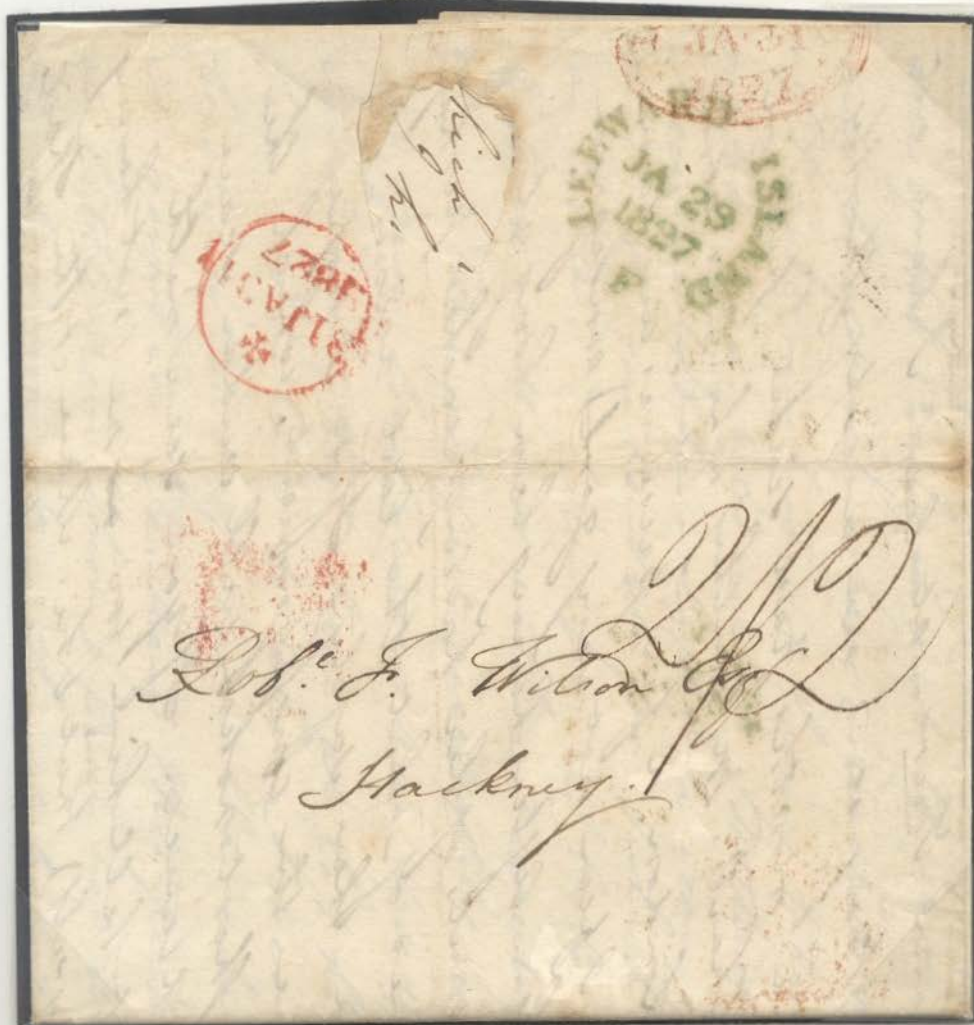 JA·31
1827
LEEWARD ISLAND
JA 29
1827
F
31JA31
1827
2/2
Robt. F. Wilson Esq
Hackney.